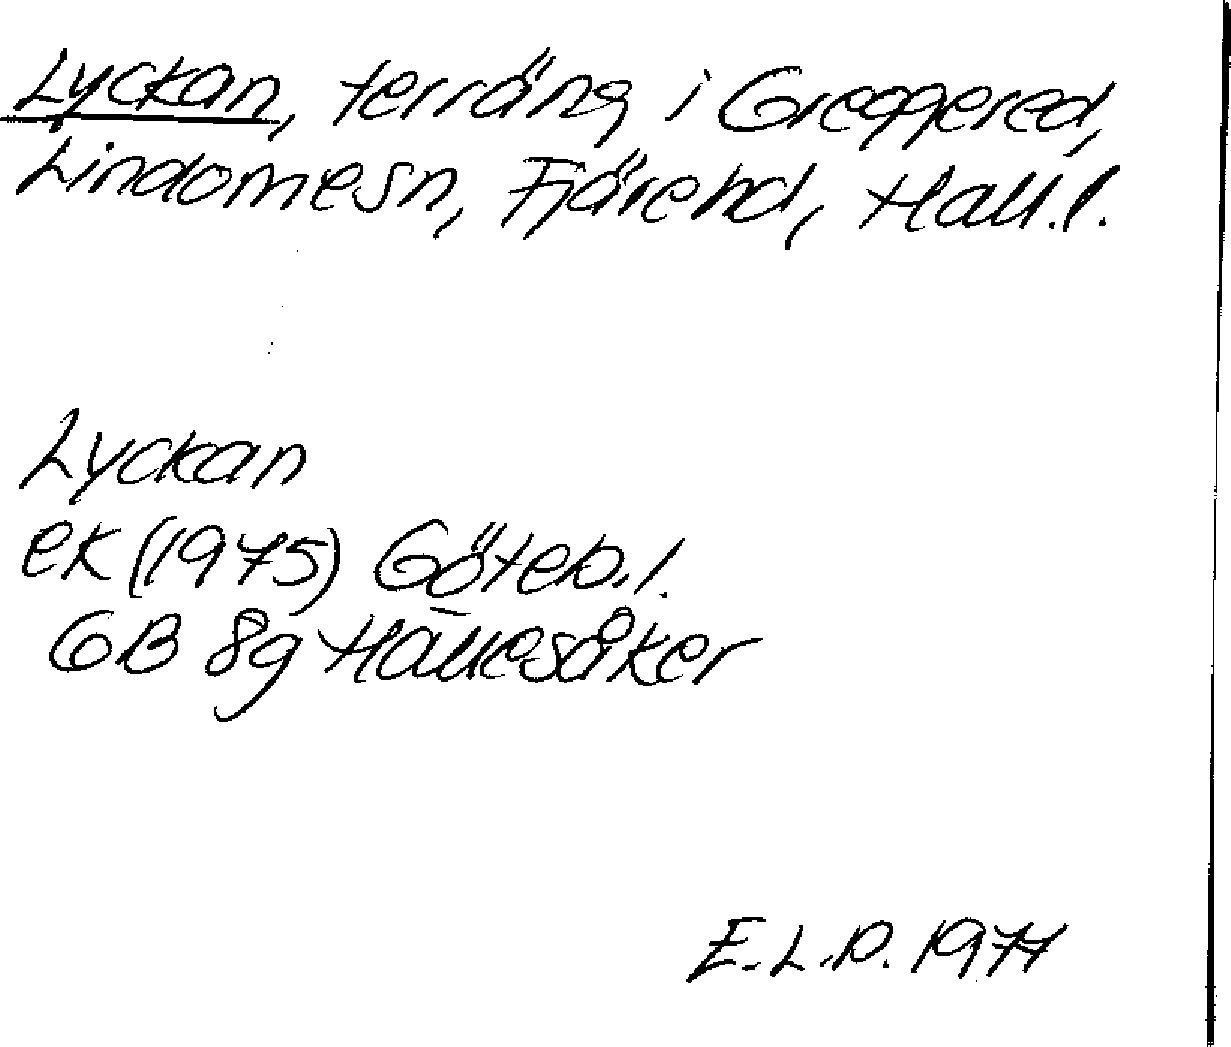 Lyckan, terräng i Greggered,
Lindomesn, Fjärehd, Hall.l.
Lyckan
ek (1975) Göteb.l.
6B 8g Hällesåker
E.L.P. 1977